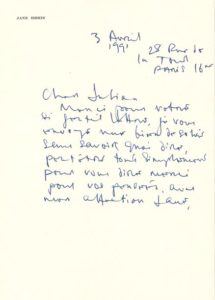 JANE BIRKIN
3 Avril
1991
28 Rue de
la Tour
PARIS 16ème
Cher Julian
Merci pour votre
si gentille lettre, je vous
sans savoir quoi dire,
peut être tout simplement
pour vous dire merci
pour vos pensées, avec
mon affection Jane,